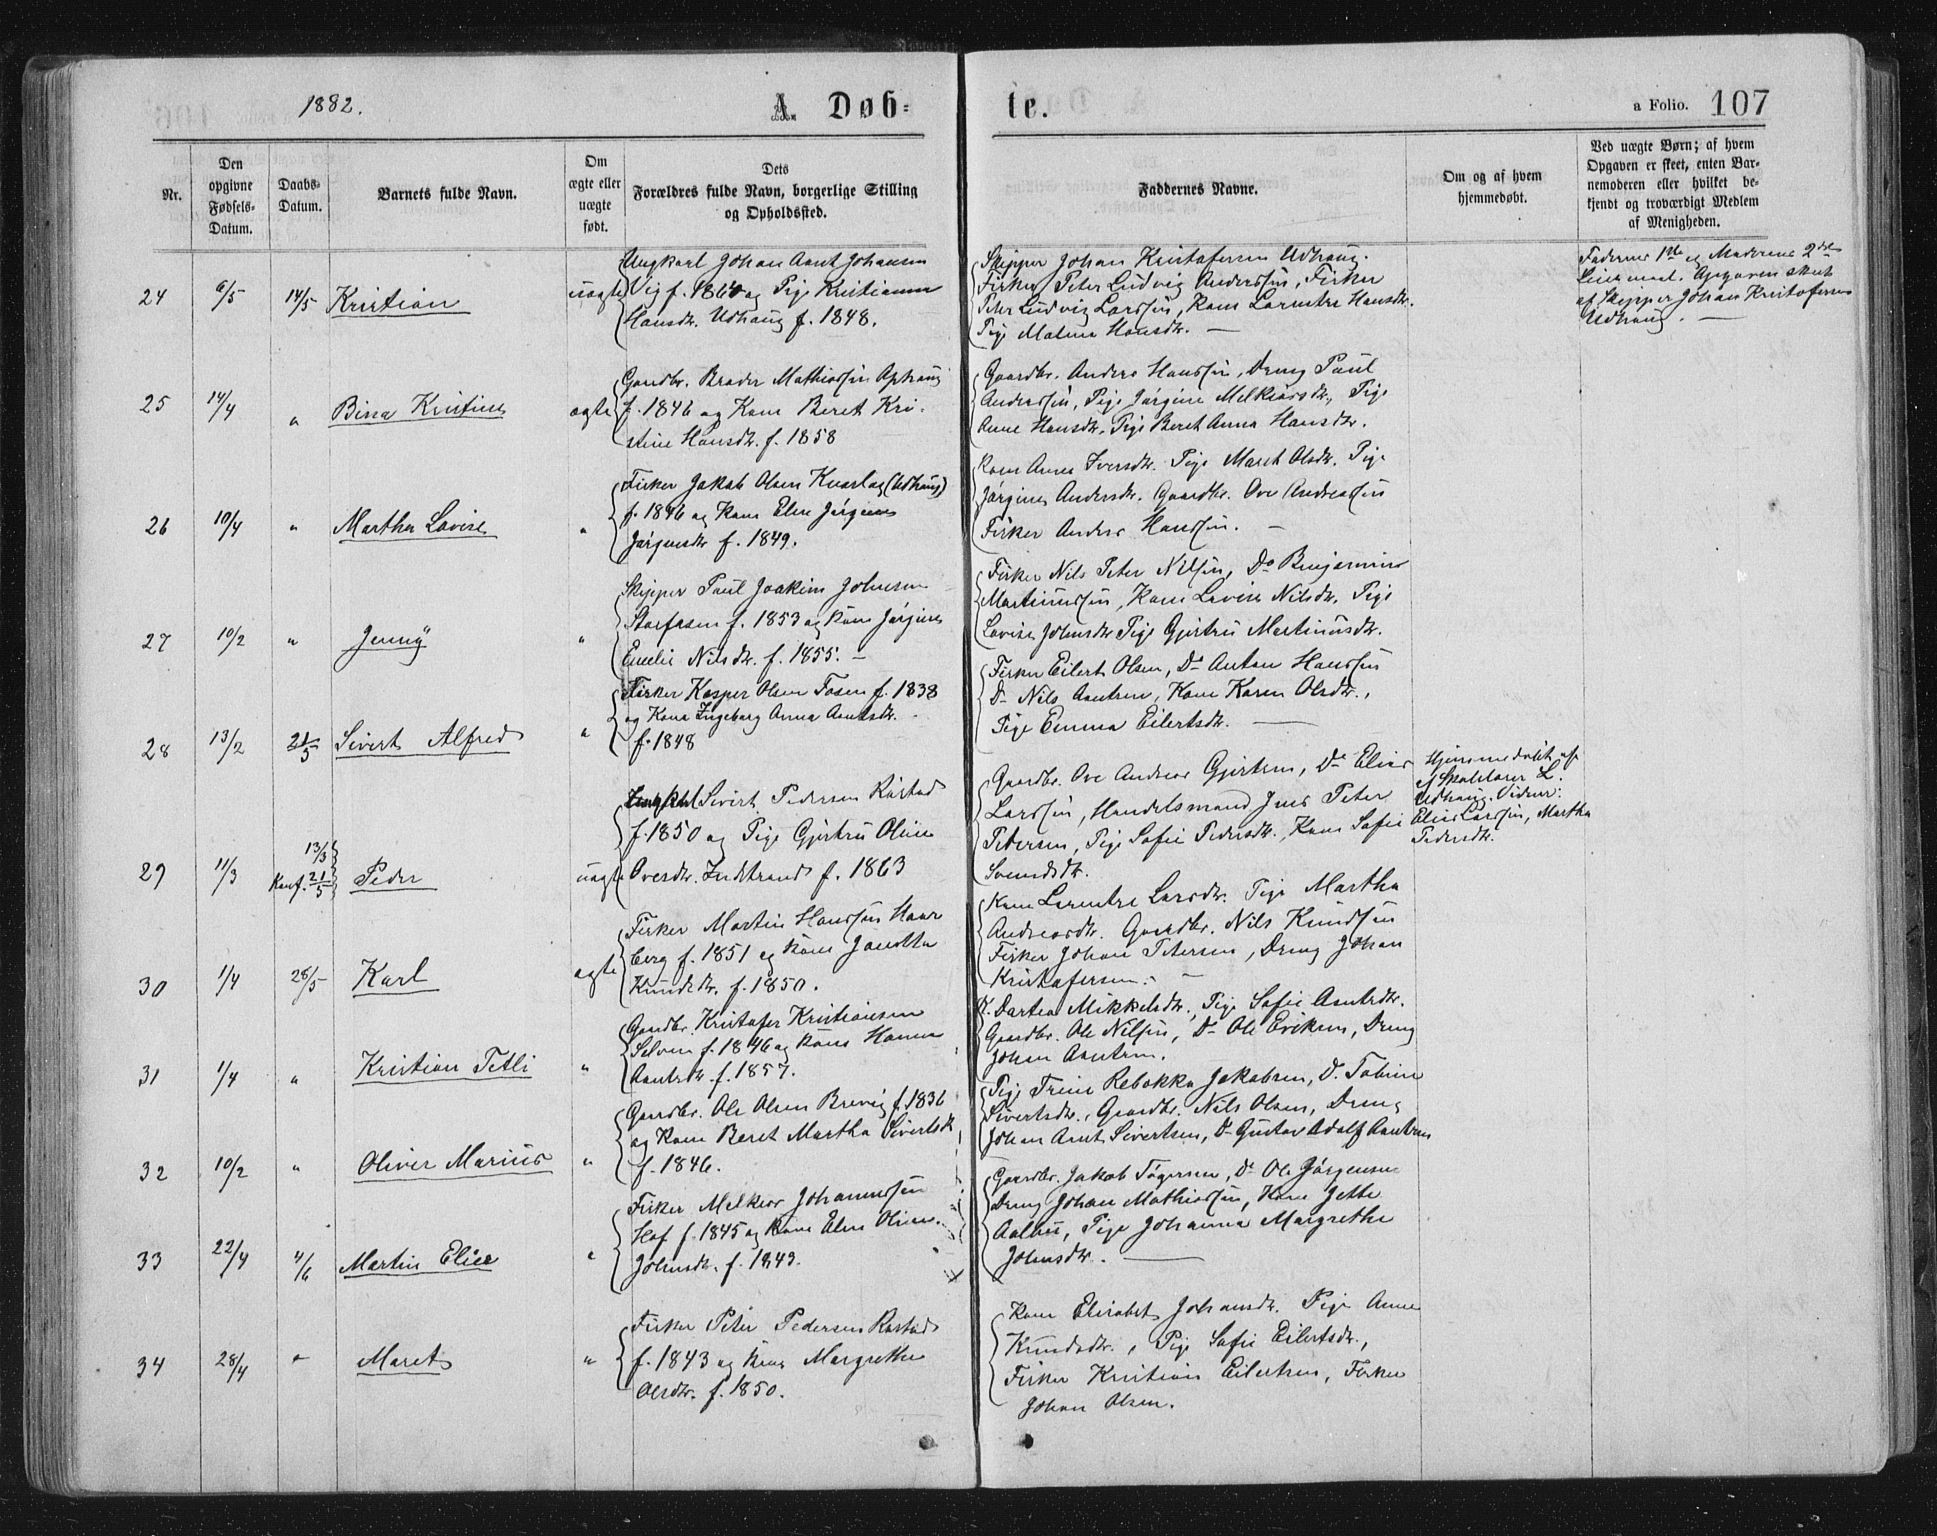 1882.
A. Døb-
te.
a Folio. 107
Nr.
Den opgivne Fødsels-Datum.
Daabs-Datum.
Barnets fulde Navn.
Om ægte eller uægte født.
Dets Forældres fulde Navn, borgerlige Stilling og Opholdssted.
Faddernes Navne.
Om og af hvem hjemmedøbt.
Ved uægte Børn; af hvem Opgaven er skeet, enten Barnemoderen eller hvilket bekjendt og troværdigt Medlem af Menigheden.
24 6/5 14/5 Kristian uægte
Ungkarl Johan Arnt Johansen
Vig f. 1860 og Pige Kristianna
Hansdtr. Udhaug f. 1848.
Skipper Johan Kristofersen Udhaug.
Fisker Peter Ludvig Anderssøn, Fisker
Peter Ludvig Larssøn, Kone Larentse Hansdtr.
Pige Malena Hansdtr. —
Faderens 1ste og Moderens 2det
Leiermaal. Opgaven skeet
af Skipper Johan Kristofersen
Udhaug. —
25 14/4 „ Bina Kristine ægte
Gaardbr. Brader Mathiassøn Ophaug
f. 1846 og Kone Beret Kri-
stine Hansdtr. f. 1858
Gaardbr. Anders Hanssøn, Dreng Paul
Anderssøn, Pige Jørgine Melkiorsdtr., Pige
Anne Hansdtr. Pige Beret Anna Hansdtr.
26 10/4 „ Martha Lovise „
Fisker Jakob Olsen Kvarlag (Udhaug)
f. 1846 og Kone Elen Jørgine
Jørgensdtr f. 1849.
Kone Anne Iversdtr. Pige Maret Olsdtr. Pige
Jørgine Andersdtr. Gaardbr. Ove Andreassøn
Fisker Anders Hanssøn. —
27 10/2 „ Jenny „
Skipper Paul Joakim Johnsen
Storfosen f. 1853 og Kone Jørgine
Emelie Nilsdtr. f. 1855. —
Fisker Nils Peter Nilssøn, Do Benjamin
Martinussøn, Kone Lovise Nilsdtr. Pige
Lovise Johnsdtr Pige Gjertru Martinusdtr.
28 13/2 21/5 Sivert Alfred „
Fisker Kasper Olsen Fosen f. 1838
og Kone Ingeborg Anna Arntsdtr.
f. 1848
Fisker Eilert Olsen, Do Anton Hanssøn
Do Nils Arntsen, Kone Karen Olsdtr.,
Pige Emma Eilertsdtr. —
29 11/3 13/3 Konf. 21/5 Peder uægte
Ungkarl Sivert Pedersen Røstad
f. 1850 og Pige Gjertru Oline
Ovesdtr. Indstrand f. 1863
Gaardbr. Ove Andreas Gjertsen, Do Elias
Larssøn, Handelsmand Jens Peter
Petersen, Pige Sofie Pedersdtr., Kone Sofie
Svendsdtr.
Hjemmedøbt af
Skolelærer L.
Udhaug. Vidner:
Elias Larssøn, Martha
Pedersdtr.
30 1/4 28/5 Karl ægte
Fisker Martin Hanssøn Haar
berg f. 1851 og Kone Janetta
Knudsdtr. f. 1850.
Kone Larentse Larsdtr. Pige Martha
Andreasdtr. Gaardbr. Nils Knudssøn
Fisker Johan Petersen, Dreng Johan
Kristofersen. —
31 1/4 „ Kristian Petli „
Gaardbr. Kristofer Kristiansen
Selven f. 1846 og Kone Hanna
Arntsdtr. f. 1857.
K. Dortea Mikkelsdtr., Pige Sofie Arntsdtr.
Gaardbr. Ole Nilssøn, Do Ole Eriksen, Dreng
Johan Arntsen.
32 10/2 „ Oliver Marius „
Gaardbr. Ole Olsen Brevig f. 1836
og Kone Beret Martha Sivertsdtr
f. 1846.
Pige Trine Rebekka Jakobsen, Do Tobine
Sivertsdtr., Gaardbr. Nils Olsen, Dreng
Johan Arnt Sivertsen, Do Gustav Adolf Arntsen
33 22/4 4/6 Martin Elias „
Fisker Melkior Johannessøn
Hof f. 1845 og Kone Elen Oline
Johnsdtr. f. 1843.
Gaardbr. Jakob Tøgersen, Do Ole Jørgensen
Dreng Johan Mathiassøn, Kone Jette
Aalbu, Pige Johanna Margrethe
Johnsdtr. —
34 28/4 „ Maret „
Fisker Peter Pedersen Røstad
f. 1843 og Kone Margrethe
Olsdtr. f. 1850.
Kone Elisabet Johansdtr. Pige Anne
Knudsdtr., Pige Sofie Eilertsdtr.,
Fisker Kristian Eilertsen, Fisker
Johan Olsen.